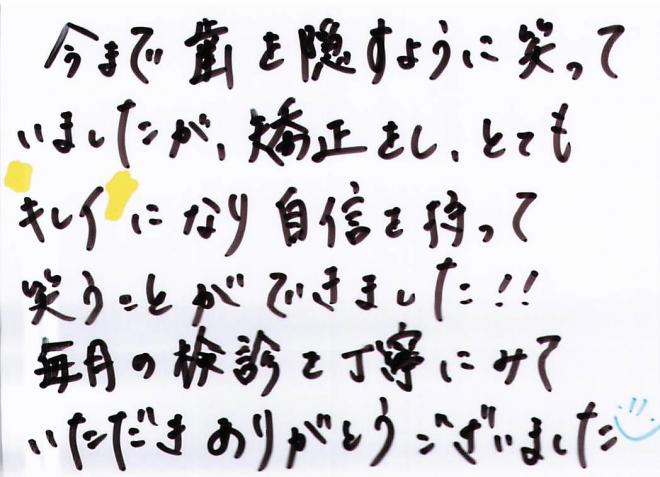 今まで歯を隠すように笑って
いましたが、矯正をし、とても
キレイになり自信を持って
笑うことができました!!
毎月の検診を丁寧にみて
いただきありがとうございました